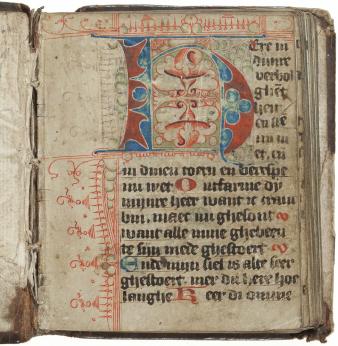 Ere in
dinre
verbol
ghēt
hen
en ste
mi ni
et, en
in dinen toren en berespe
mi niet Ontfarme di
mijnre heer want ic cranc
bin, maec mi ghesont
want alle mine ghebeen
te sijn mede ghestoert
Ende mijn siel is alte seer
ghestoert. mer du here hoe
langhe Keer di omme